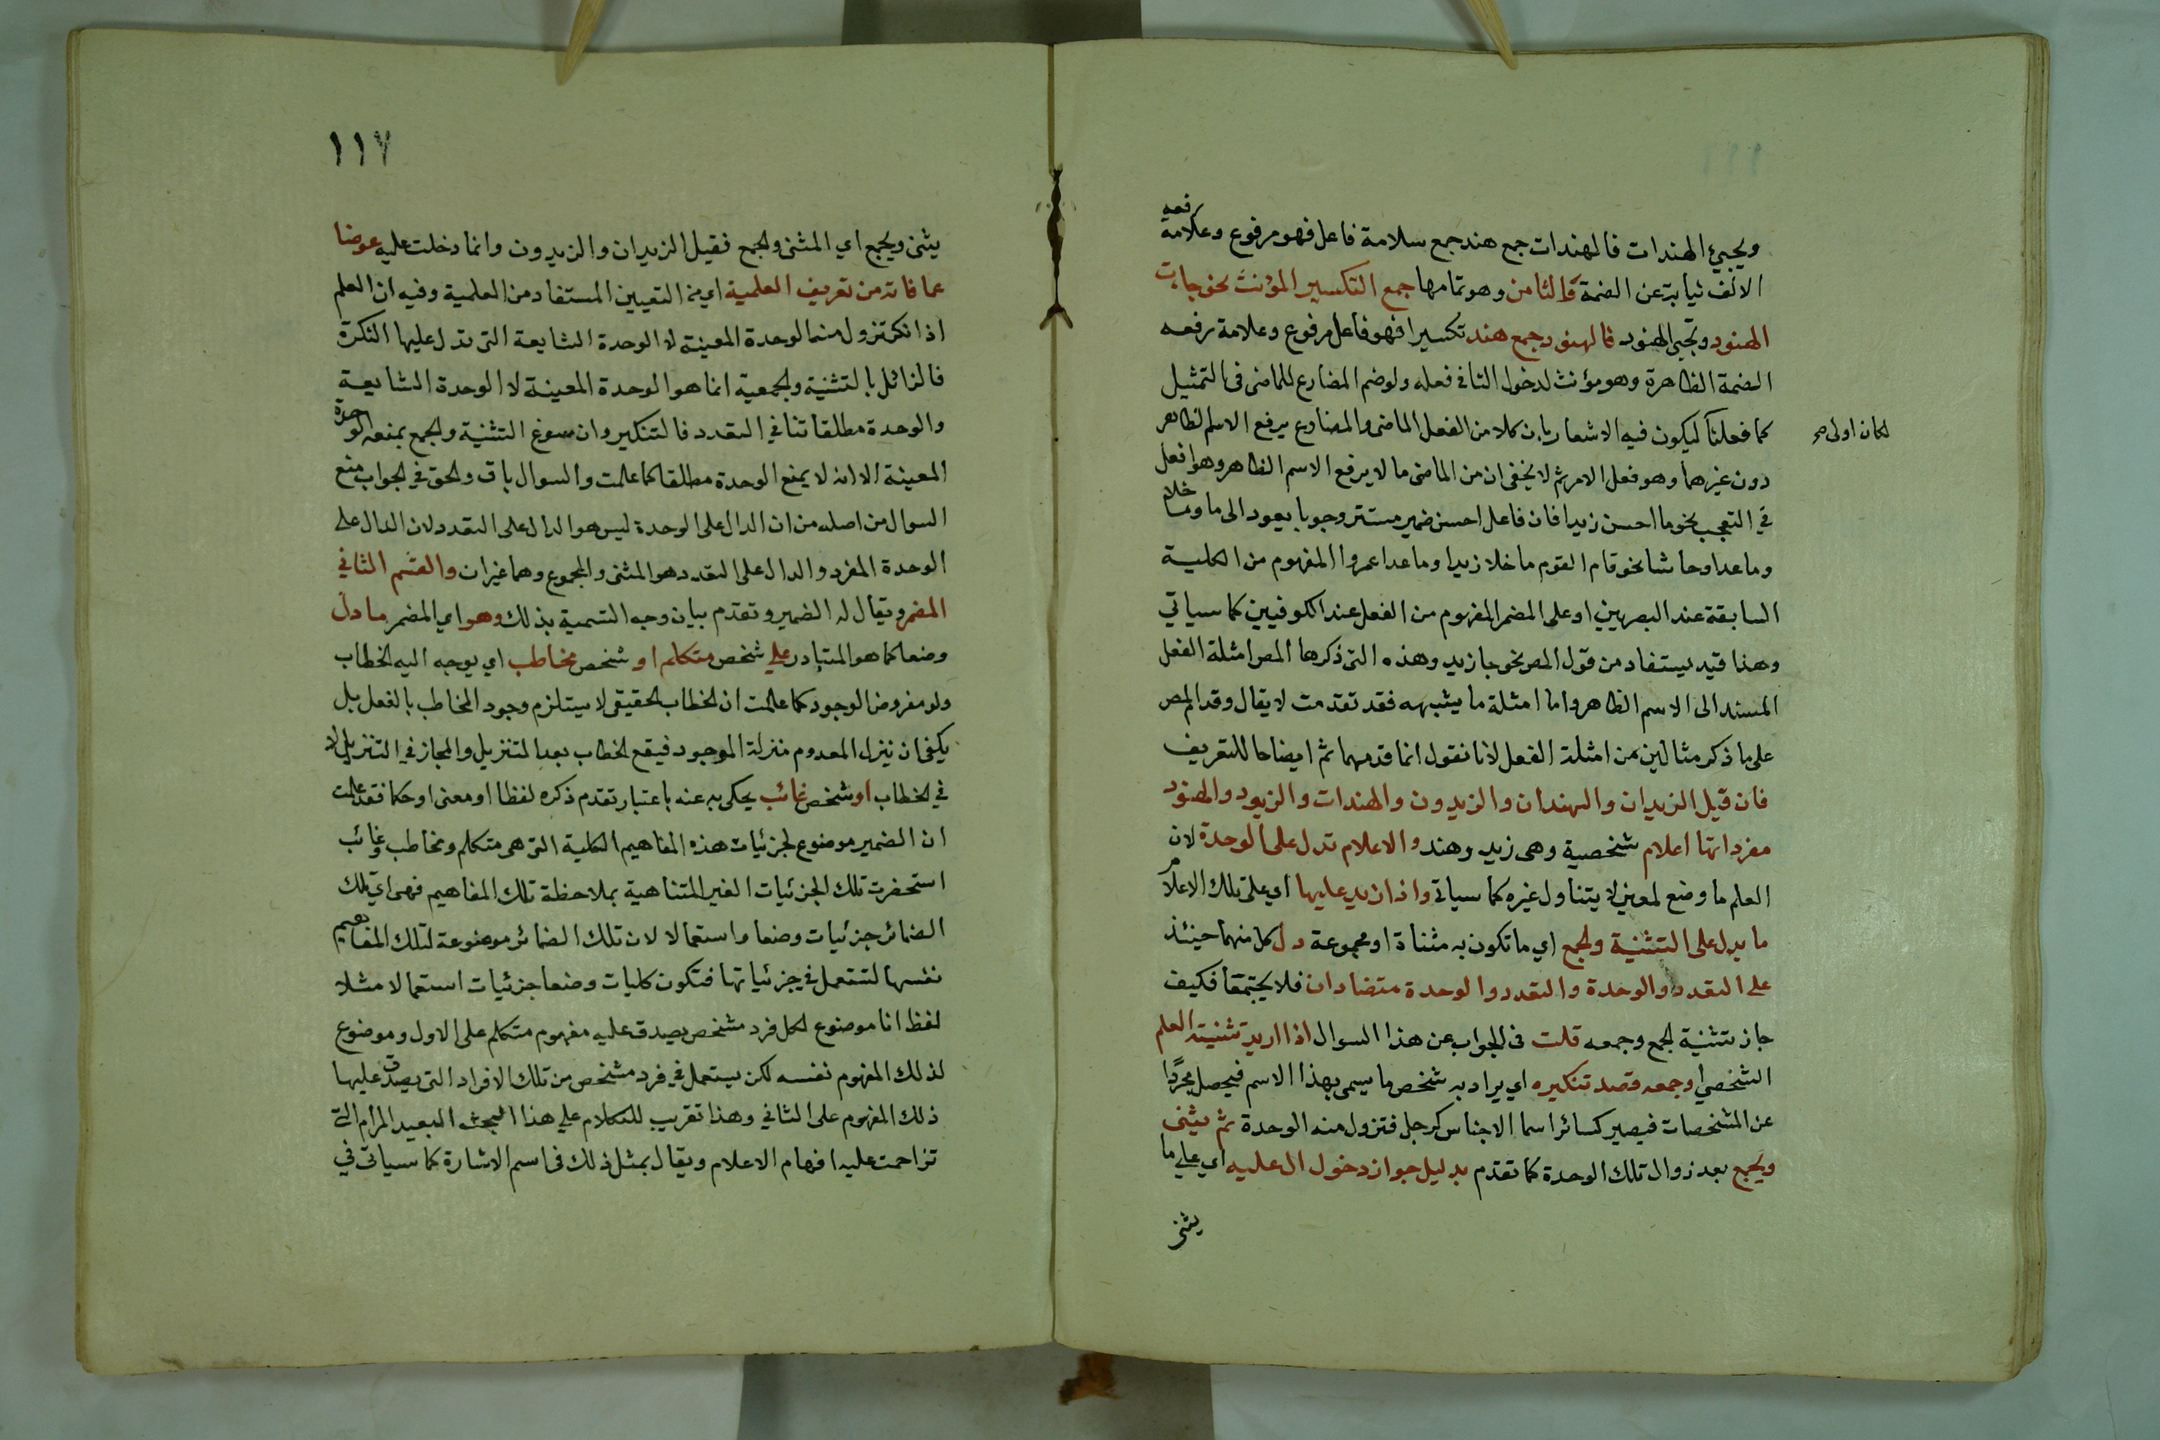 ويجيئ الهندات فالهندات جمع هند جمع سلامة فاعل فهو مرفوع وعلامة رفعه
الالف نيابة عن الضمة والثامن وهو تمامها جمع التكسير المؤنث نحو جاءت
الهنود وتجيئ الهنود فالهنود جمع هند تكسيرا فهو فاعل مرفوع وعلامة رفعه
الضمة الظاهرة وهو مؤنث لدخول التا في فعله ولو ضم المضارع للماضى فى التمثيل
كما فعلنا ليكون فيه الاشعار بان كلا من الفعل الماضى والمضارع يرفع الاسم الظاهر
لكان اولى صح
دون غيرهما وهو فعل الامر ثم لا يخفى ان من الماضى ما لا يرفع الاسم الظاهر وهو افعل
في التعجب نحو ما احسن زيدا فان فاعل احسن ضمير مستتر وجوبا يعود الى ما وما خلا
وما عدا وحاشا نحو قام القوم ما خلا زيدا وما عدا عمروا المفهوم من الكلية
السابقة عند البصريين او على المضمر المفهوم من الفعل عند الكوفيين كما سياتي
وهذا قيد يستفاد من قول المص نحو جا زيد وهذه التى ذكرها المص امثلة الفعل
المسند الى الاسم الظاهر واما امثلة ما يشبهه فقد تقدمت لا يقال وقدم المص
على ما ذكر مثالين من امثلة الفعل لانا نقول انما قدمهما ثم ايضاحا للتعريف
فان قيل الزيدان والهندان والزيدون والهندات والزيود والهنود
مفرداتها اعلام شخصية وهى زيد وهند والاعلام تدل على الوحدة لان
العلم ما وضع لمعين لا يتناول غيره كما سياتي واذا زيد عليها اى على تلك الاعلام
ما يدل على التثنية والجمع اي ما تكون به مثناة او مجموعة دل كل منهما حينئذ
على التعدد والوحدة والتعدد والوحدة متضادان فلا يجتمعا فكيف
جاز تثنية الجمع وجمعه قلت فى الجواب عن هذا السوال اذا اريد تثنيته العلم
الشخصي او جمعه قصد تنكيره اي يراد به شخص ما يسمى بهذا الاسم فيحصل مجردا
عن المشخصات فيصير كسائر اسما الاجناس كرجل فتزول منه الوحدة ثم يثنى
ويجمع بعد زوال تلك الوحدة كما تقدم بدليل جواز دخول ال عليه اي على ما
يثنى
١١٧
يثنى ويجمع اي المثنى والجمع فقيل الزيدان والزيدون وانما دخلت عليه عوضا
عما فاته من تعريف العلمية اي من التعيين المستفاد من العلمية وفيه ان العلم
اذا نكر تزول منه الوحدة المعينة لا الوحدة الشايعة التى تدل عليها النكرة
فالزائل بالتثنية والجمعية انما هو الوحدة المعينة لا الوحدة الشايعة
والوحدة مطلقا تنافي التعدد فالتنكير وان سوغ التثنية والجمع بمنعه الوحدة
المعينة الا انه لا يمنع الوحدة مطلقا كما علمت والسوال باق والحق في الجواب منع
السوال من اصله من ان الدال على الوحدة ليس هو الدال على التعدد لان الدال على
الوحدة المفرد والدال على التعدد هو المثنى والمجموع وهما غيران والقسم الثاني
المضمر ويقال له الضمير وتقدم بيان وجه التسمية بذلك وهو اي المضمر ما دل
وضعا كما هو المتبادر على شخص متكلم او شخص مخاطب اي يوجه اليه الخطاب
ولو مفروض الوجود كما علمت ان الخطاب الحقيقي لا يستلزم وجود المخاطب بالفعل بل
يكفى ان ينزل المعدوم منزلة الموجود فيقع الخطاب بعد التنزيل والمجاز في التنزيل لا
في الخطاب او شخص غائب يحكى به عنه باعتبار تقدم ذكره لفظا او معنى او حكما فقد علمت
ان الضمير موضوع لجزئيات هذه المفاهيم الكلية التى هى متكلم ومخاطب وغائب
استحضرت تلك الجزئيات الغير المتناهية بملاحظة تلك المفاهيم فهى اي تلك
الضمائر جزئيات وضعا واستعمالا لان تلك الضمائر موضوعة لتلك المفاهيم
نفسها لتستعمل في جزئياتها فتكون كليات وضعا جزئيات استعمالا مثلا
لفظ انا موضوع لكل فرد مشخص يصدق عليه مفهوم متكلم على الاول وموضوع
لذلك المفهوم نفسه لكن يستعمل في فرد مشخص من تلك الافراد التى يصدق عليها
ذلك المفهوم على الثاني وهذا تقريب للكلام على هذا المبحث البعيد المرام التي
تزاحمت عليه افهام الاعلام ويقال بمثل ذلك فى اسم الاشارة كما سياتي في